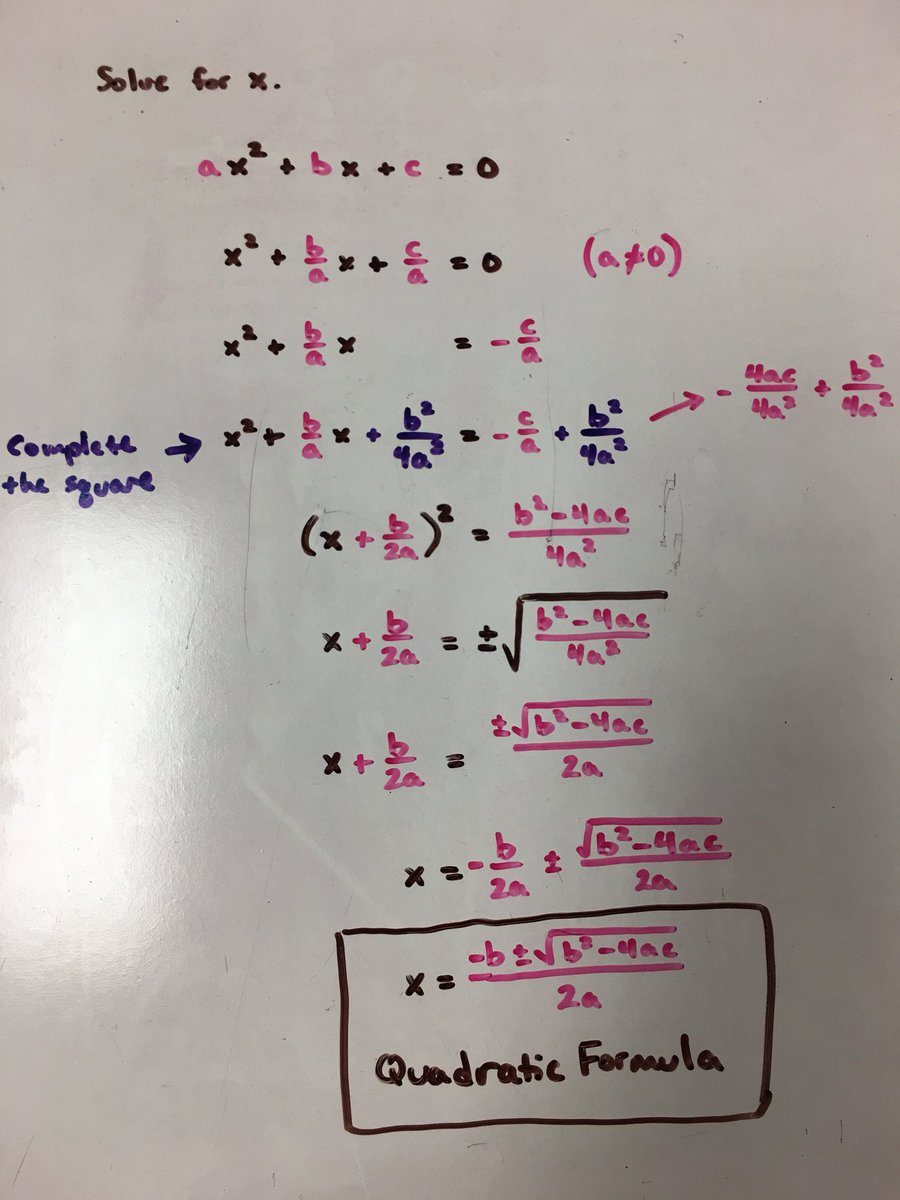 Solve for x.
ax² + bx + c = 0
x² + b/a x + c/a = 0 (a≠0)
x² + b/a x = - c/a
Complete the square → x² + b/a x + b²/4a² = - c/a + b²/4a² → - 4ac/4a² + b²/4a²
(x + b/2a)² = b²-4ac/4a²
x + b/2a = ±√(b²-4ac/4a²)
x + b/2a = ±√(b²-4ac)/2a
x = - b/2a ± √(b²-4ac)/2a
x = -b±√(b²-4ac)/2a
Quadratic Formula